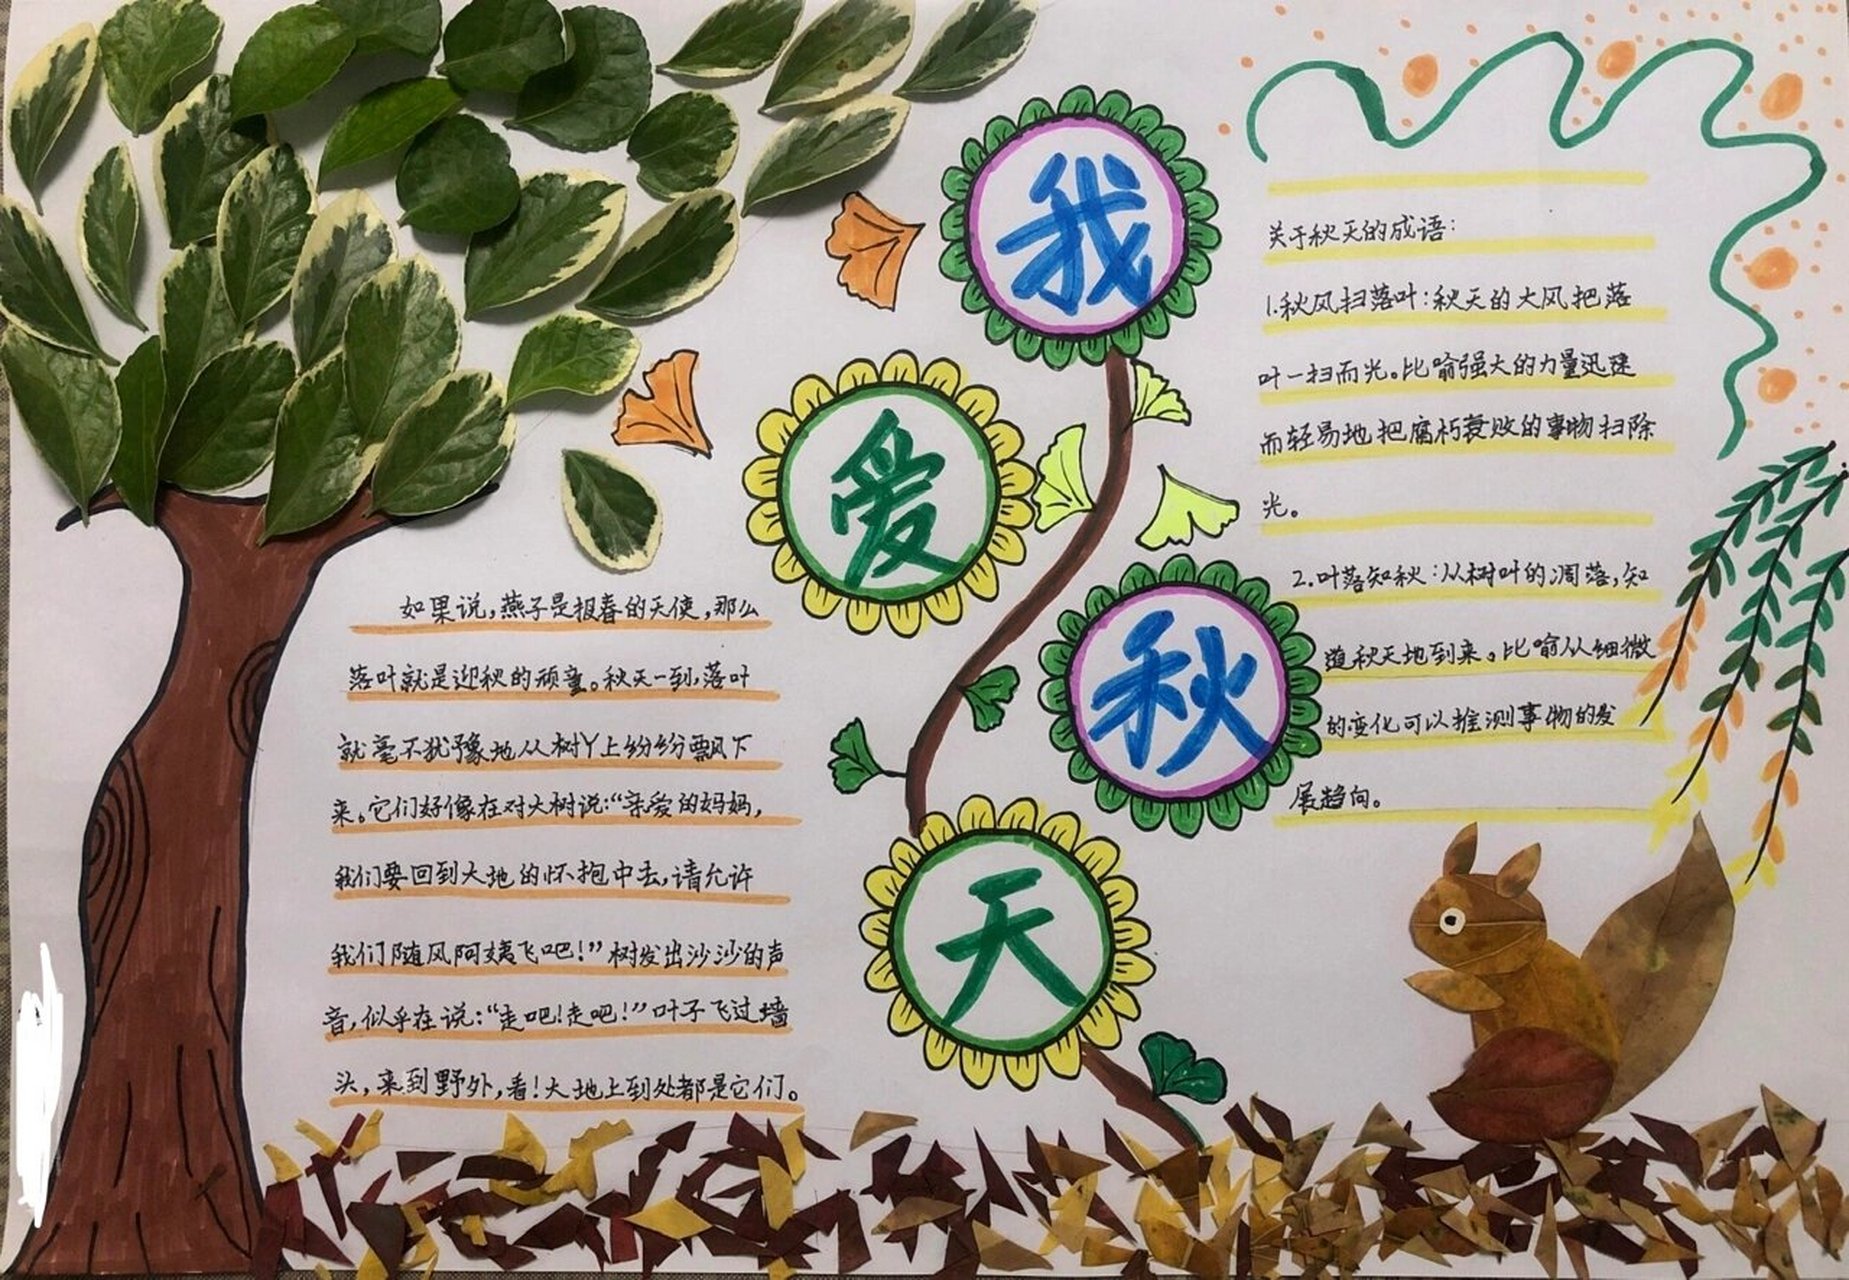 我
爱
秋
天
如果说,燕子是报春的天使,那么
落叶就是迎秋的顽童。秋天一到,落叶
就毫不犹豫地从树丫上纷纷飘下
来。它们好像在对大树说:“亲爱的妈妈,
我们要回到大地的怀抱中去,请允许
我们随风阿姨飞吧!”树发出沙沙的声
音,似乎在说:“走吧!走吧!”叶子飞过墙
头,来到野外,看!大地上到处都是它们。
关于秋天的成语:
1.秋风扫落叶:秋天的大风把落
叶一扫而光。比喻强大的力量迅速
而轻易地把腐朽衰败的事物扫除
光。
2.叶落知秋:从树叶的凋落,知
道秋天地到来。比喻从细微
的变化可以推测事物的发
展趋向。